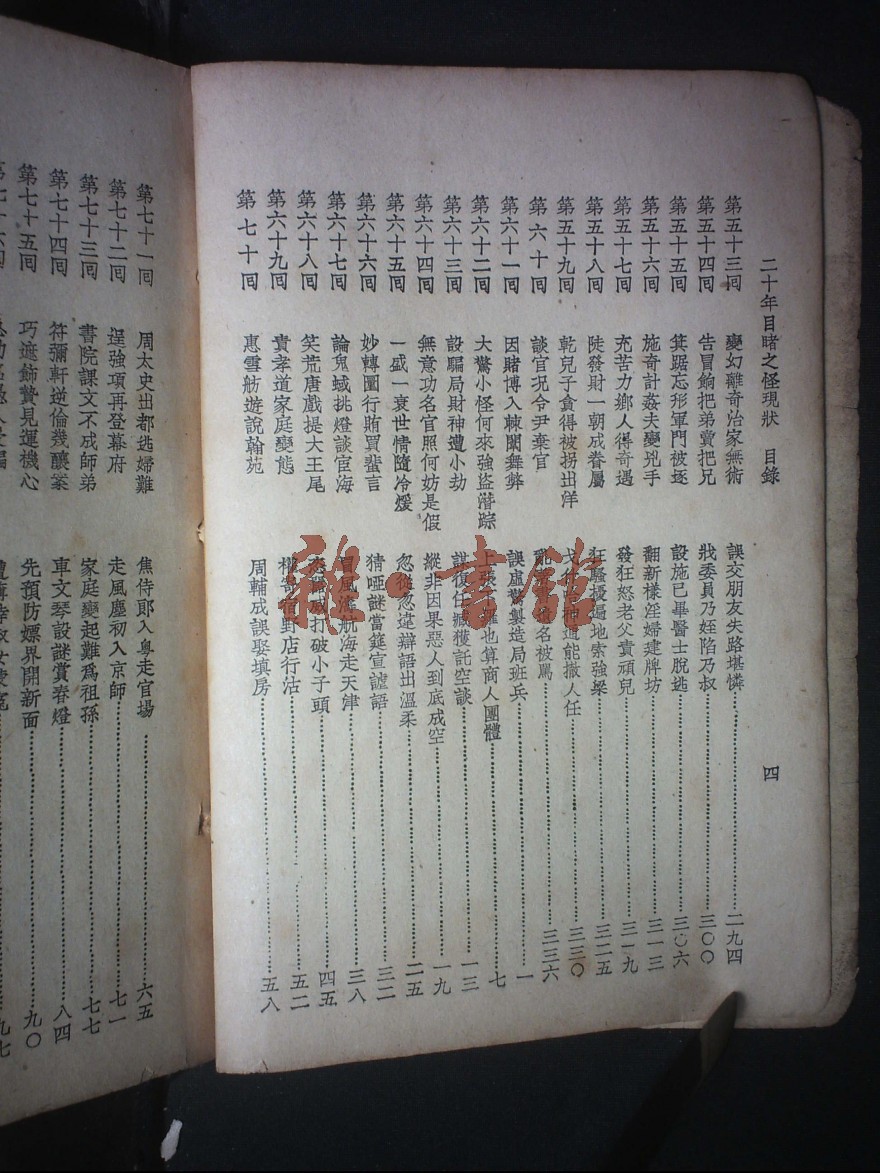 二十年目睹之怪現狀　目錄　四
第五十三回　變幻離奇治家無術　誤交朋友失路堪憐　二九四
第五十四回　告冒餉把弟賣把兄　戕委員乃姪陷乃叔　三〇〇
第五十五回　箕踞忘形軍門被逐　設施已畢醫士脫逃　三〇六
第五十六回　施奇計姦夫變兇手　翻新樣婬婦建牌坊　三一三
第五十七回　充苦力鄉人得奇遇　發狂怒老父責頑兒　三一九
第五十八回　陡發財一朝成眷屬　狂騷擾遍地索強梁　三二五
第五十九回　乾兒子貪得被拐出洋　戈什哈神通能撤人任　三三〇
第六十回　談官況令尹棄官　被罵　三三六
第六十一回　因賭博入棘闈舞弊　誤虛驚製造局班兵　一
第六十二回　大驚小怪何來強盜潛踪　上張　也算商人團體　七
第六十三回　設騙局財神遭小劫　謀復任臧獲託空談　一三
第六十四回　無意功名官照何妨是假　縱非因果惡人到底成空　一九
第六十五回　一盛一衰世情隨冷煖　忽從忽違辯語出溫柔　二五
第六十六回　妙轉圜行賄買蜚言　猜啞謎當筵宣謔語　三二
第六十七回　論鬼蜮挑燈談宦海　冒風濤航海走天津　三八
第六十八回　笑荒唐戲提大王尾　打破小子頭　四五
第六十九回　責孝道家庭變態　權寄宿野店行沽　五二
第七十回　惠雪舫遊說翰苑　周輔成誤娶填房　五八
第七十一回　周太史出都逃婦難　焦侍郎入粵走官場　六五
第七十二回　逞強項再登幕府　走風塵初入京師　七一
第七十三回　書院課文不成師弟　家庭變起難爲祖孫　七七
第七十四回　符彌軒逆倫幾釀案　車文琴設謎賞春燈　八四
第七十五回　巧遮飾贄見運機心　先預防嫖界開新面　九〇
九七
雜·書館